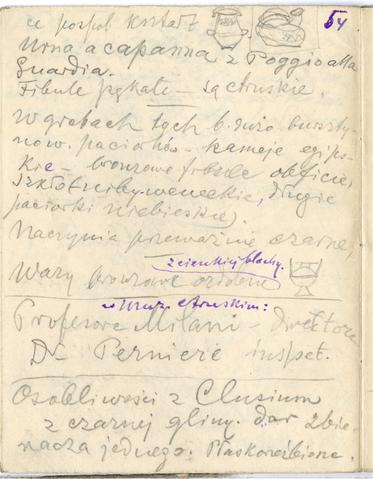 54
Urna a capanna z Poggio alla
Guardia.
Fibule pękate — są etruskie.
W grobach tych b. dużo burszty-
now. paciorków — kameje egips-
kie — bronzowe fibule obficie,
szkło niby weneckie, długie
paciorki niebieskie).
Naczynia przeważnie czarne
z cienkiej blachy.
Wazy bronzowe
w Muz. etruskim:
Profesore Milani — direttore
Dr Perniere inspet.
Osobliwości z Clusium
z czarnej gliny. dar zbie-
racza jednego. Płaskorzeźbione.